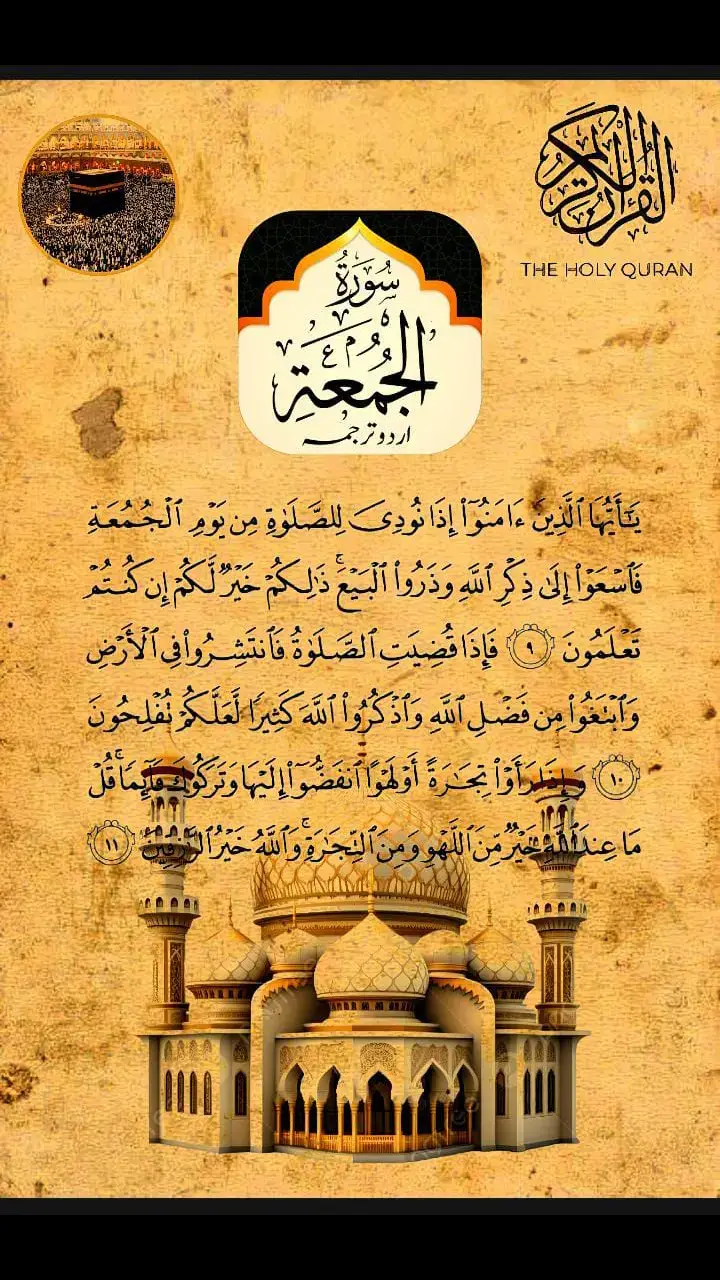 القرآن الكريم
THE HOLY QURAN
سُورَةُ
الجُمُعَةِ
اردو ترجمہ
يَـٰٓأَيُّهَا ٱلَّذِينَ ءَامَنُوٓا۟ إِذَا نُودِىَ لِلصَّلَوٰةِ مِن يَوْمِ ٱلْجُمُعَةِ
فَٱسْعَوْا۟ إِلَىٰ ذِكْرِ ٱللَّهِ وَذَرُوا۟ ٱلْبَيْعَ ۚ ذَٰلِكُمْ خَيْرٌ لَّكُمْ إِن كُنتُمْ
تَعْلَمُونَ ٩ فَإِذَا قُضِيَتِ ٱلصَّلَوٰةُ فَٱنتَشِرُوا۟ فِى ٱلْأَرْضِ
وَٱبْتَغُوا۟ مِن فَضْلِ ٱللَّهِ وَٱذْكُرُوا۟ ٱللَّهَ كَثِيرًا لَّعَلَّكُمْ تُفْلِحُونَ
١٠ وَإِذَا رَأَوْا۟ تِجَـٰرَةً أَوْ لَهْوًا ٱنفَضُّوٓا۟ إِلَيْهَا وَتَرَكُوكَ قَآئِمًا ۚ قُلْ
مَا عِندَ ٱللَّهِ خَيْرٌ مِّنَ ٱللَّهْوِ وَمِنَ ٱلتِّجَـٰرَةِ ۚ وَٱللَّهُ خَيْرُ ٱلرَّٰزِقِينَ ١١